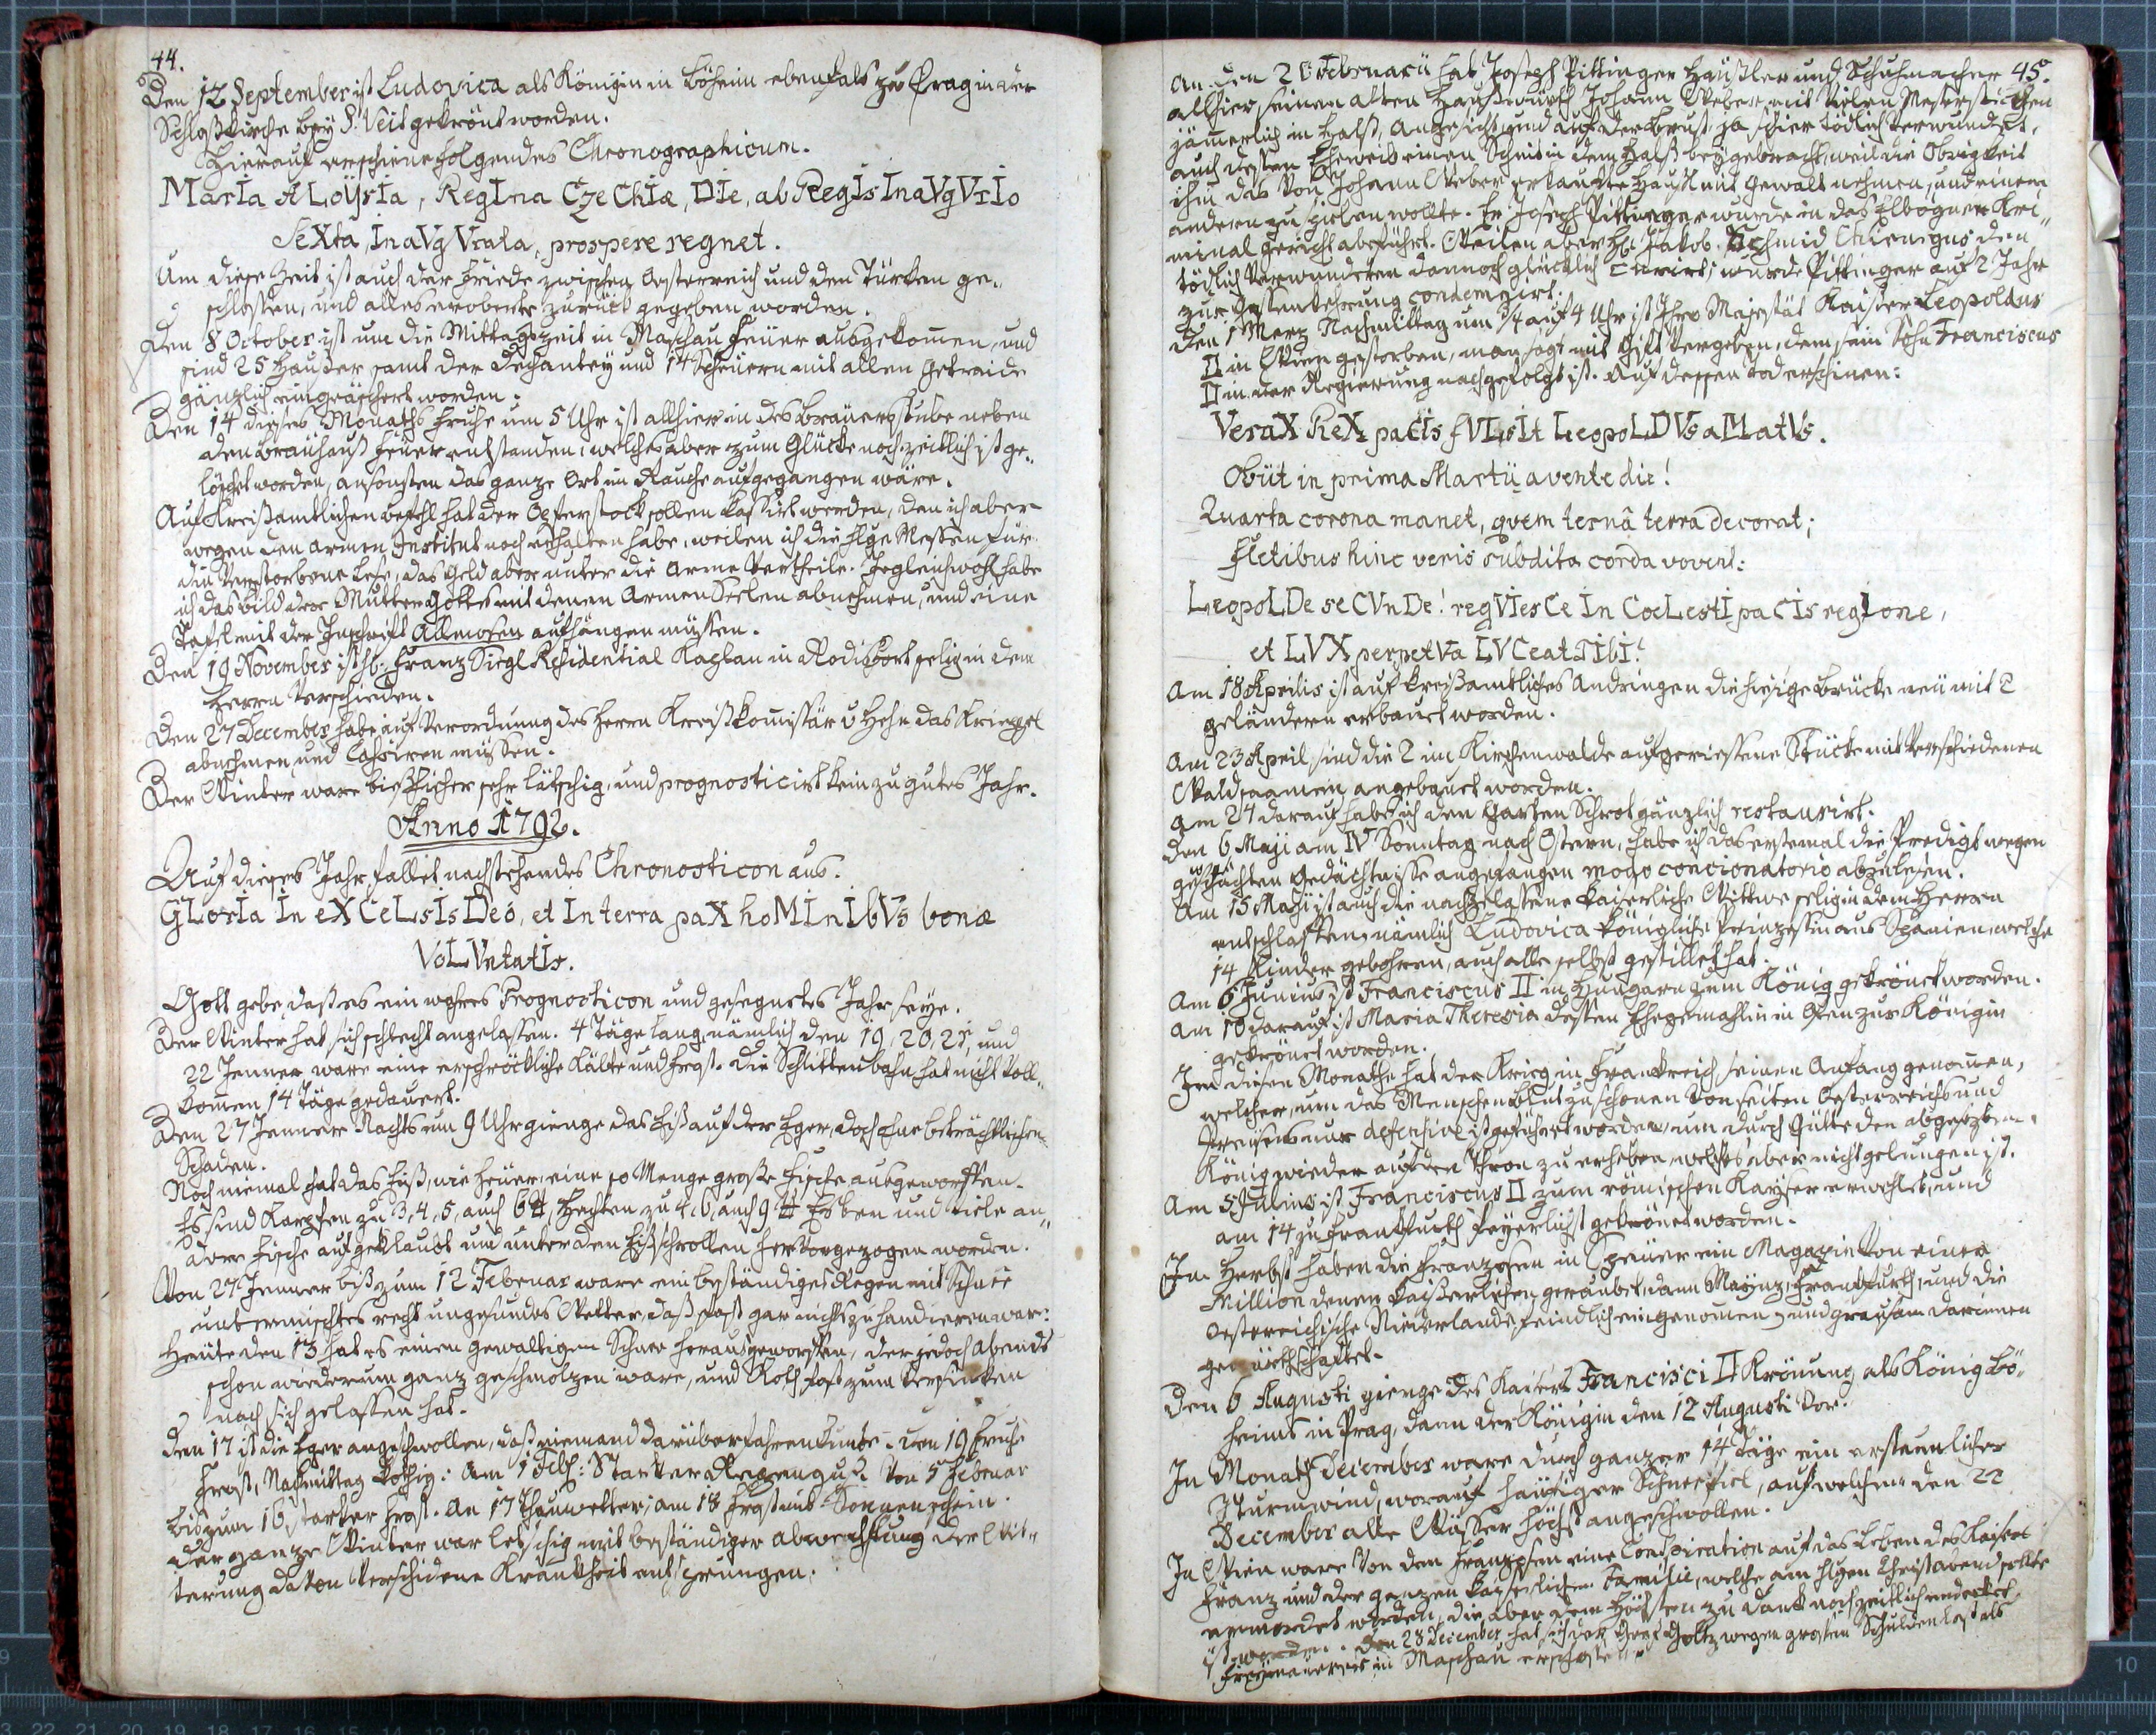 44.
Den 12 September ist Ludovica als Königin in Böheim ebenfals zu Prag in der
Schloßkirche bey S. Veit gekrönt worden.
Hierauf erschiene folgendes Chronographicum.
MarIa ALoÿsIa, RegIna CzeChIæ, DIe, ab RegIs InaVgVrIo
SeXta, InaVgVrata, prospere regnet.
Um diese Zeit ist auch der Friede zwischen Oesterreich und den Türken ge„
schlossen, und alles eroberte zurück gegeben worden.
Den 8 October ist um die Mittagszeit in Maschau Feuer ausgekomen, und
sind 25 Häußer samt der Dechantey und 14 Scheuern mit allen Getraide
gänzlich eingeäschert worden.
Den 14 dieses Monaths Fruhe um 5 Uhr ist allhier in des Bräuers Stube neben
den Bräuhauß Feuer entstanden, welches aber zum Glücke noch zeitlich ist ge„
löschet worden, ansonsten das ganze Ort im Rauche aufgegangen wäre.
Auf Kreißamtlichen Befehl hat der Opferstock sollen kassirt werden, den ich aber
wegen den armen Institut noch erhalten habe, weilen ich die hlge Messen für
die Verstorbene lese, das Geld aber unter die Arme vertheile. Jegleichwohl habe
ich das Bild der Mutter Gottes mit denen Armen Seelen abnehmen, und eine
Tafel mit der Inschrift Allmosen aufhängen müssen.
Den 19 November ist H. Franz Siegl Residential Kaplan in Rodisfort selig in dem
Herrn verschieden.
Den 27 December habe auf Verordnung des Herrn Kreißkomissär v Hehn das
abnehmen und Cassiren müssen.
Der Winter ware bißhieher sehr lätschig, und prognosticirt kein zu gutes Jahr.
Anno 1792.
Auf dieses Jahr fallet nachstehendes Chronosticon aus.
GLorIa In eXCeLsIs Deo, et In terra paX hoMInIbVs bonæ
VoLVntatIs.
Gott gebe, daß es ein wahres Prognosticon und gesegnetes Jahr seye.
Der Winter hat sich schlecht angelassen. 4 Täge lang, nämlich den 19, 20, 21, und
22 Jenner ware eine erschröckliche Kälte und Frost. Die Schlittenbahn hat nicht voll„
komen 14 Täge gedauert.
Den 27 Jenner Nachts um 9 Uhr gienge das Eiß auf der Eger, doch ohne beträchtlichen
Schaden.
Noch niemal hat das Eiß, wie heuer, eine so Menge große Fische ausgeworffen.
Es sind Karpfen zu 3, 4, 5, auch 6 ℔, Hechten zu 4, 6, auch 9 ℔ und viele an„
dere Fische aufgeklaubt und unter den Eißschrollen hervorgezogen worden.
Von 27 Jenner biß zum 12 Februar ware ein beständiges Regen mit Schnee
untermischtes recht ungesundes Wetter, daß fast gar nichts zu handieren war:
Heute den 13 hat es einen gewaltigen Schnee herausgeworffen, der jedoch Abends
schon wiederum ganz geschmolzen ware, und Koth fast zum versinken
nach sich gelassen hat.
Den 17 ist die Eger angeschwollen, daß niemand darüberfahren kunte. Den 19 Fruhe
Frost, Nachmittag kothig. Am 1 Febr: Starker Regenguß. Von 5 Februar
bis zum 16 starker Frost. An 17 Thauwetter; am 18 Frost mit Sonnenschein.
Der ganze Winter war letschig mit beständiger Abwechslung der Wit„
terung davon verschidene Krankheit entsprungen.
45.
An den 20 Februarii hat Joseph Pittinger Häußler und Schuhmacher
allhier seinen alten Haußwürth Johann Weber mit vielen Messerstichen
jämerlich im Halß, Angesicht, und auf der Brust, ja schier tödlich verwundet,
auch dessen Eheweib einen Schnit in dem Halß beygebracht, weil die Obrigkeit
ihm das von Johann Weber erkaufte Hauß mit Gewalt nehmen, und einem
andern zu wollte. Er Joseph Pittinger wurde in das Elbogner Kri„
minal Gericht abgeführt. Weilen aber H. Jakob Schmid Chirurgus den
tödlich Verwundeten dannoch glücklich curirt, wurde Pittinger auf 2 Jahr
zur Gassenkehrung condemnirt.
Den 1 Merz Nachmittag um 3/4 auf 4 Uhr ist Ihro Majestät Kaiser Leopoldus
II in Wien gestorben, man sagt mit Gift vergeben, dem sein Sohn Franciscus
II in der Regierung nachgefolgt ist. Auf dessen Tod erschinen:
VeraX ReX paCIs fVLsIt LeopoLDVs aMatVs.
Obiit in prima Martii avente die!
Quarta corona manet, qvem ternâ terra decorat;
Fletibus hinc veris subdita corda vovent:
LeopoLDe seCVnDe! reqVIesCe In CoeLestI paCIs regIone,
et LVX perpetVa LVCeat TIbI!
Am 18 Aprilis ist auf kreißamtliches Andringen die hiesige Brücke neu mit 2
geländern erbauet worden.
Am 23 April sind die 2 im Kirchenwalde aufgeriessene Stücke mit verschiedenen
Waldsaamen angebauet worden.
Am 24 darauf habe ich den Garten Schrot gänzlich restaurirt.
Den 6 Maji am IV Sonntag nach Ostern, habe ich das erstemal die Predigt wegen
geschwächten Gedächtnisse angefangen modo concionatorio abzulesen.
Am 15 Maji ist auch die nachgelassene kaiserliche Wittwe selig in dem Herrn
entschlaffen, nämlich Ludovica königliche Prinzessin aus Spanien, welche
14 Kinder gebohren, auch alle selbst gestillet hat.
Am 6 Junius ist Franciscus II in Hungarn zum König gekrönet worden.
Am 10 darauf ist Maria Theresia dessen Ehegemahlin in Ofen zur Königin
gekrönet worden.
In diesen Monathe hat der Krieg in Frankreich seinen Anfang genomen,
welcher, um das Menschenblut zu schonen von seiten Oesterreichs und
Preusens nur defensive ist geführet worden, um durch Gütte den abgesetzten
König wieder auf den Thron zu erheben, welches aber nicht gelungen ist.
Am 5 Julius ist Franciscus II zum römischen Kayser erwehlet, und
am 14 zu Frankfurth feyerlichst gekrönet worden.
Im Herbst haben die Franzosen in Speuer ein Magazin von einer
Million denen Kaißerlichen geraubet, dann Maynz, Frankfurth, und die
Oestereichische Niederlande feindlich eingenomen, und grausam darinnen
gewirthschaftet.
Den 6 Augusti gienge des Kaisers Francisci II Krönung als König Bö„
heims in Prag, dann der Königin den 12 Augusti vor.
In Monath December ware durch ganzer 14 Täge ein erstaunlicher
Sturmwind, worauf häufiger Schnee fiel, auf welchem den 22
December alle Wässer höchst angeschwollen.
In Wien ware von den Franzosen eine Conspiration auf das Leben des Kaisers
Franz und der ganzen kayserlichen Familie, welche am hlgen Christabend sollte
ermordet worden, die aber dem Höchsten zu Dank noch zeitlich endecket
ist worden. Den 28 December hat sich der Graf Goltz wegen großen Schuldenlast als
in Maschau erschossen.